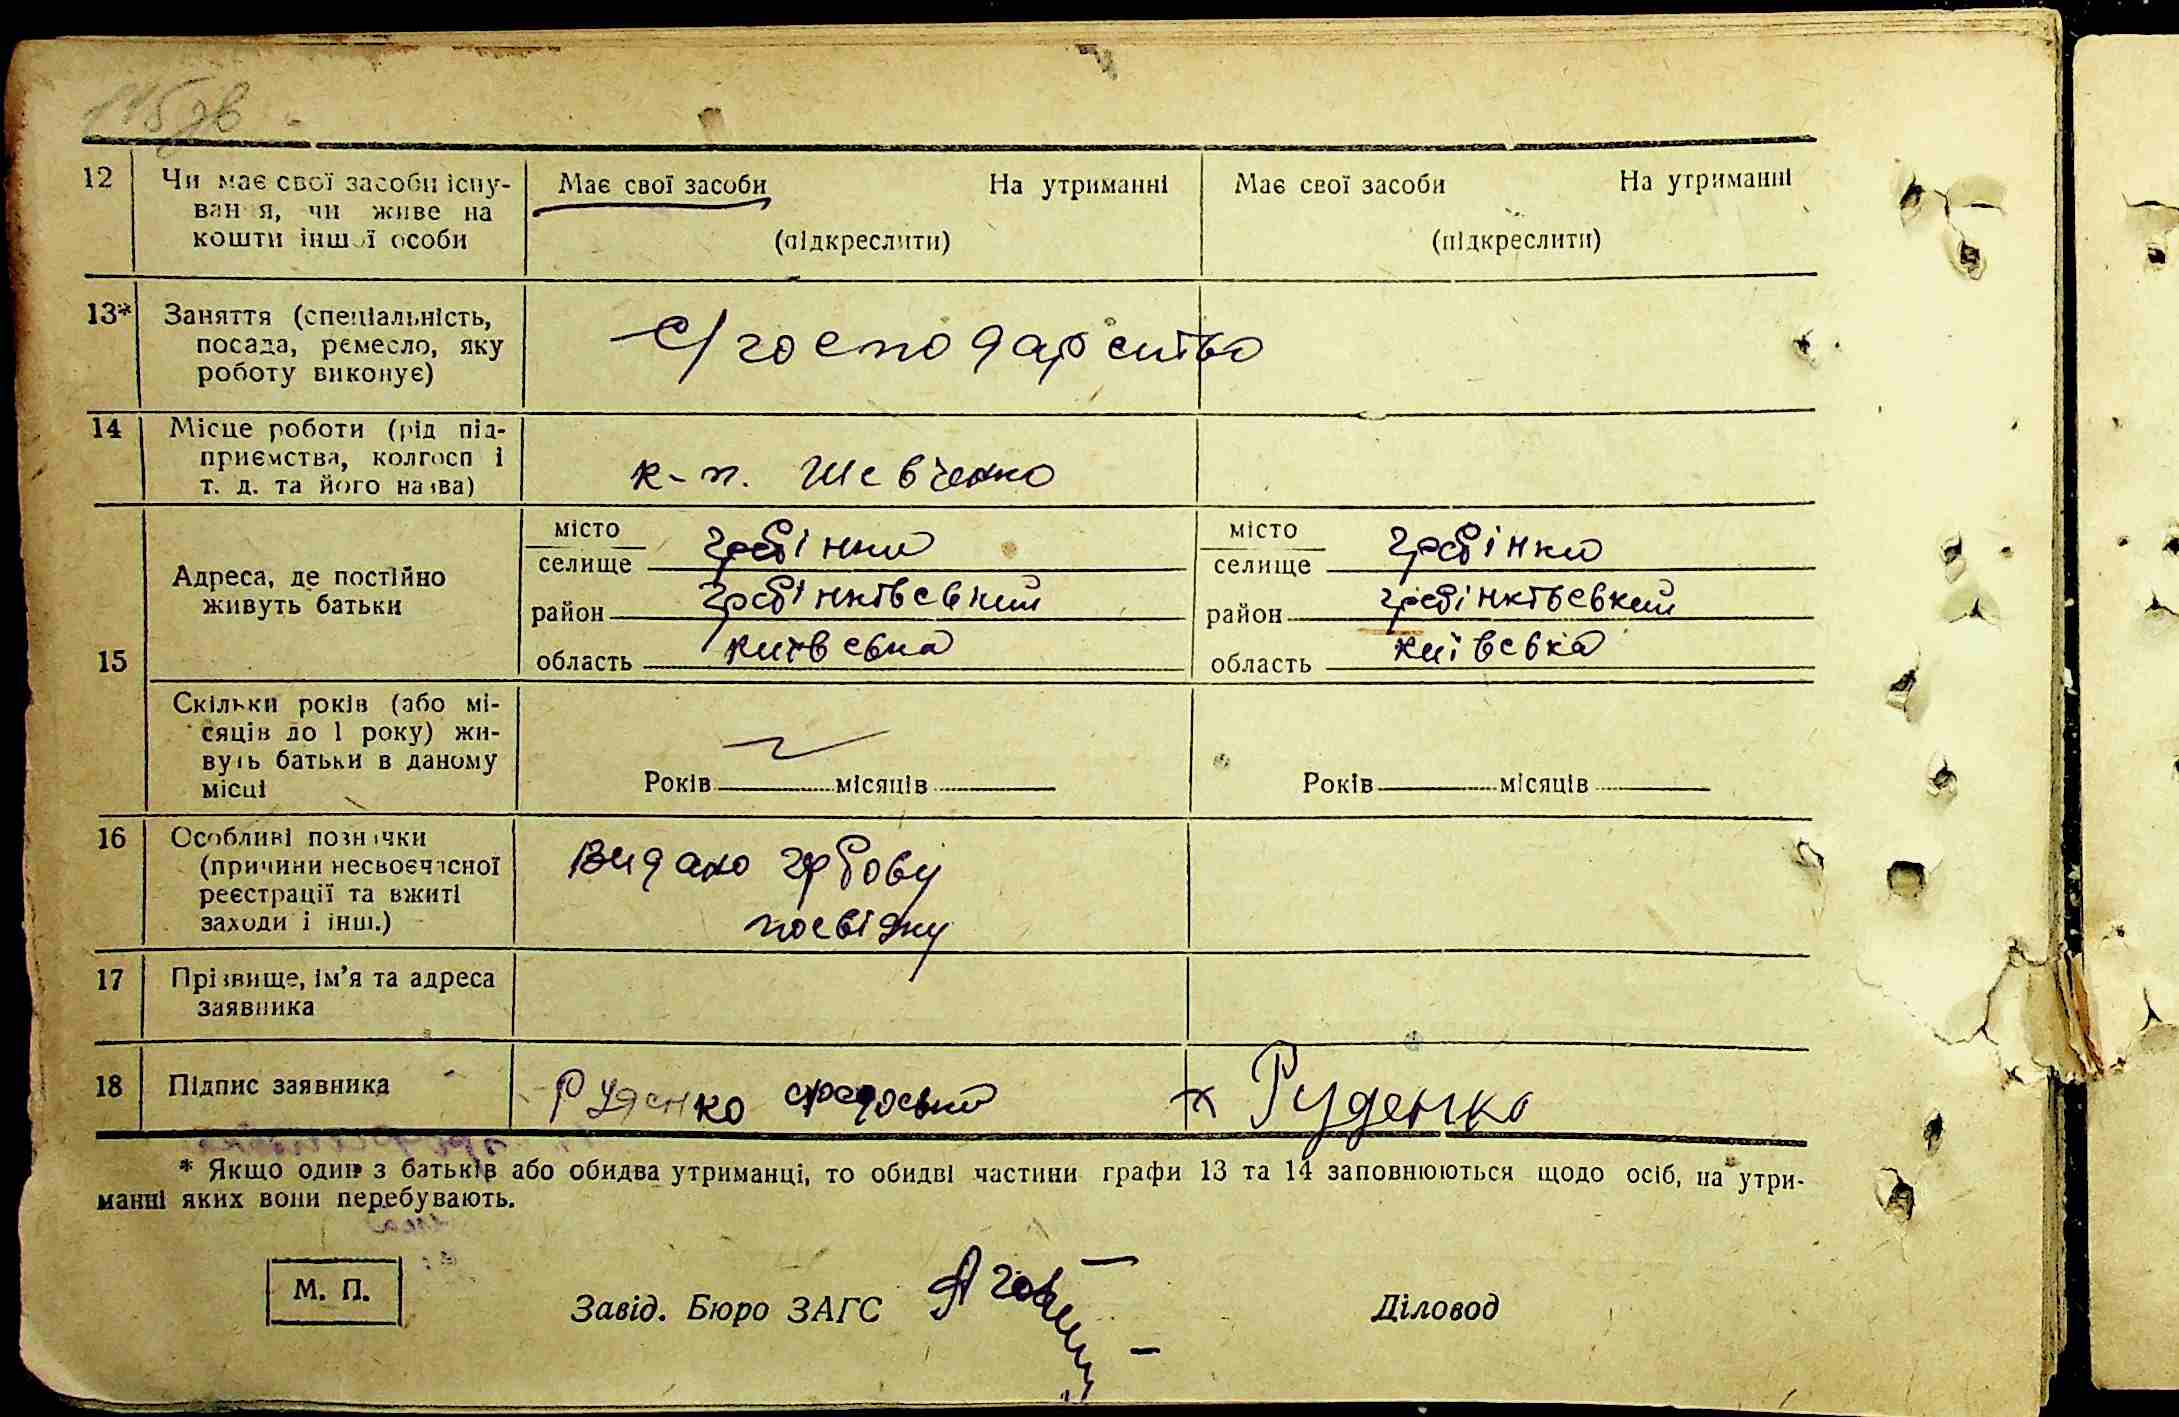 115 зв
12 Чи має свої засоби існу- Має свої засоби На утриманні Має свої засоби На утриманні
вання, чи живе на
кошти іншої особи (підкреслити) (підкреслити)
13* Заняття (спеціальність,
посада, ремесло, яку с/господарство
роботу виконує)
14 Місце роботи (рід під-
приємства, колгосп і к-п. Шевченко
т. д. та його назва)
місто гребінки місто гребінки
селище селище
Адреса, де постійно
живуть батьки район гребінківський район гребінківський
15 область київська область київська
Скільки років (або мі-
сяців до 1 року) жи-
вуть батьки в даному
місці Років місяців Років місяців
16 Особливі познічки
(причини несвоєчасної Видано гербову
реєстрації та вжиті
заходи і інш.) посвідку
17 Прізвище, ім'я та адреса
заявника
18 Підпис заявника Руденко х Руденко
* Якщо один з батьків або обидва утриманці, то обидві частини графи 13 та 14 заповнюються щодо осіб, на утри-
манні яких вони перебувають.
М. П.
Завід. Бюро ЗАГС Діловод